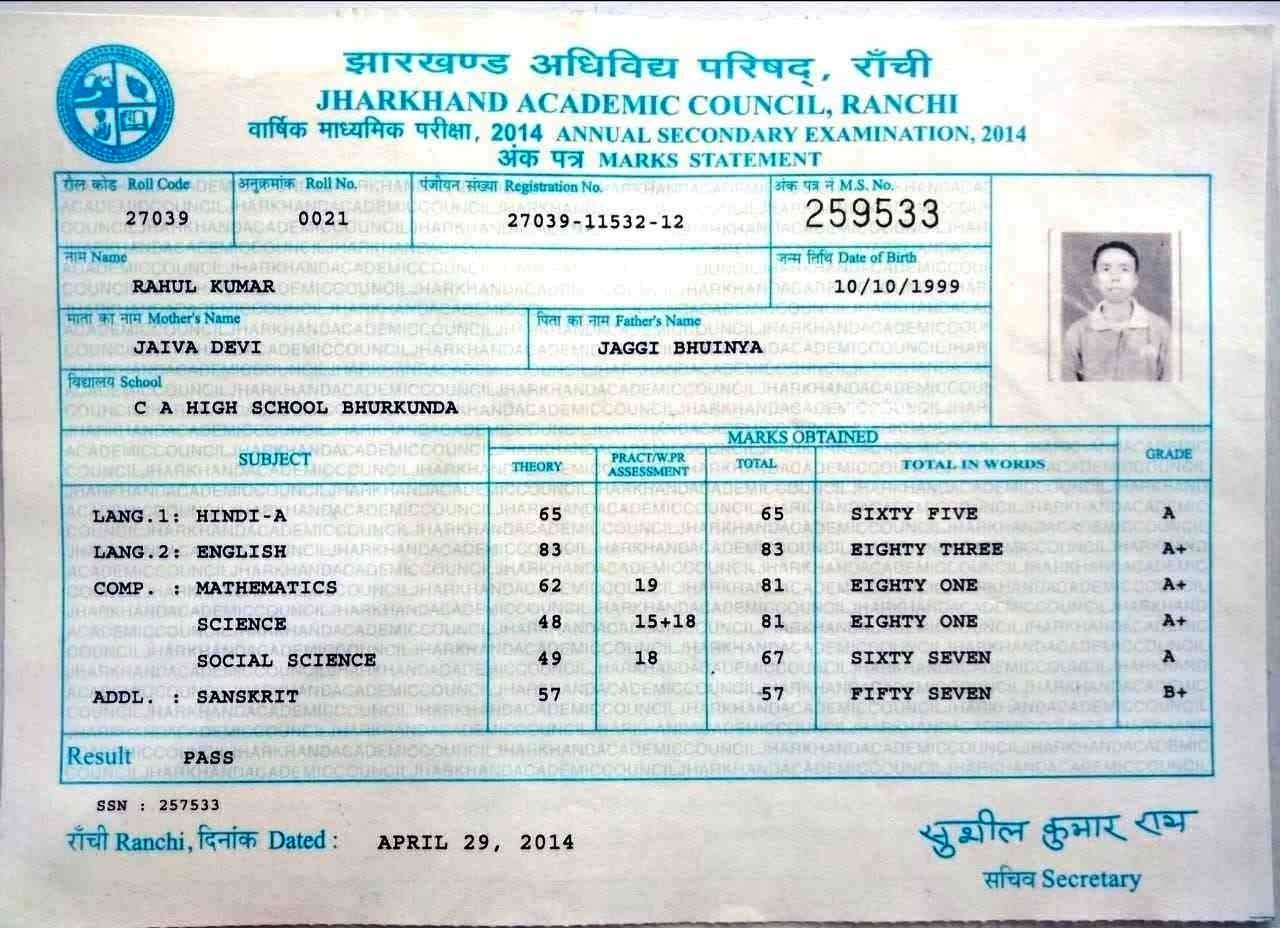 झारखण्ड अधिविद्य परिषद्, राँची
JHARKHAND ACADEMIC COUNCIL, RANCHI
वार्षिक माध्यमिक परीक्षा, 2014 ANNUAL SECONDARY EXAMINATION, 2014
अंक पत्र MARKS STATEMENT
रौल कोड Roll Code अनुक्रमांक Roll No. पंजीयन संख्या Registration No. अंक पत्र नं M.S. No.
27039 0021 27039-11532-12 259533
नाम Name जन्म तिथि Date of Birth
RAHUL KUMAR 10/10/1999
माता का नाम Mother's Name पिता का नाम Father's Name
JAIVA DEVI JAGGI BHUINYA
विद्यालय School
C A HIGH SCHOOL BHURKUNDA
SUBJECT MARKS OBTAINED GRADE
THEORY PRACT/W.PR ASSESSMENT TOTAL TOTAL IN WORDS
LANG.1: HINDI-A 65 65 SIXTY FIVE A
LANG.2: ENGLISH 83 83 EIGHTY THREE A+
COMP. : MATHEMATICS 62 19 81 EIGHTY ONE A+
SCIENCE 48 15+18 81 EIGHTY ONE A+
SOCIAL SCIENCE 49 18 67 SIXTY SEVEN A
ADDL. : SANSKRIT 57 57 FIFTY SEVEN B+
Result PASS
SSN : 257533
राँची Ranchi, दिनांक Dated : APRIL 29, 2014
सुशील कुमार राय
सचिव Secretary